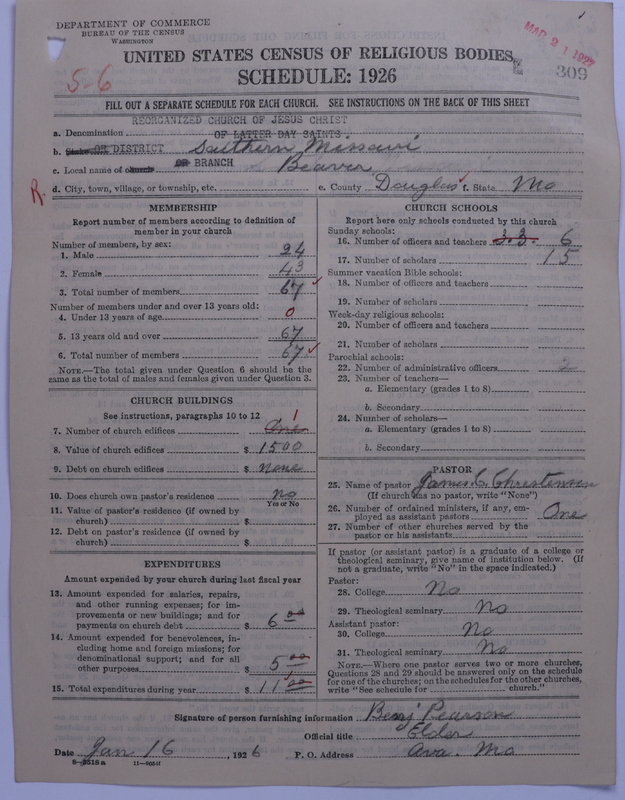 DEPARTMENT OF COMMERCE
BUREAU OF THE CENSUS
WASHINGTON
UNITED STATES CENSUS OF RELIGIOUS BODIES
SCHEDULE: 1926
5-6
309
FILL OUT A SEPARATE SCHEDULE FOR EACH CHURCH. SEE INSTRUCTIONS ON THE BACK OF THIS SHEET
REORGANIZED CHURCH OF JESUS CHRIST
a. Denomination OF LATTER DAY SAINTS.
b. State OR DISTRICT Southern Missouri
c. Local name of church OR BRANCH Beaver
R.
d. City, town, village, or township, etc. e. County Douglas f. State Mo
MEMBERSHIP
Report number of members according to definition of
member in your church
Number of members, by sex:
1. Male 24
2. Female 43
3. Total number of members 67
Number of members under and over 13 years old:
4. Under 13 years of age 0
5. 13 years old and over 67
6. Total number of members 67
NOTE.—The total given under Question 6 should be the
same as the total of males and females given under Question 3.
CHURCH BUILDINGS
See instructions, paragraphs 10 to 12
7. Number of church edifices One 1
8. Value of church edifices $ 1500
9. Debt on church edifices $ none
10. Does church own pastor's residence no
Yes or No
11. Value of pastor's residence (if owned by
church) $
12. Debt on pastor's residence (if owned by
church) $
EXPENDITURES
Amount expended by your church during last fiscal year
13. Amount expended for salaries, repairs,
and other running expenses; for im-
provements or new buildings; and for
payments on church debt $ 6 00
14. Amount expended for benevolences, in-
cluding home and foreign missions; for
denominational support; and for all
other purposes $ 5 00
15. Total expenditures during year $ 11 00
CHURCH SCHOOLS
Report here only schools conducted by this church
Sunday schools:
16. Number of officers and teachers 3.3. 6
17. Number of scholars 15
Summer vacation Bible schools:
18. Number of officers and teachers
19. Number of scholars
Week-day religious schools:
20. Number of officers and teachers
21. Number of scholars
Parochial schools:
22. Number of administrative officers 2
23. Number of teachers—
a. Elementary (grades 1 to 8)
b. Secondary
24. Number of scholars—
a. Elementary (grades 1 to 8)
b. Secondary
PASTOR
25. Name of pastor James C. Christensen
(If church has no pastor, write "None")
26. Number of ordained ministers, if any, em-
ployed as assistant pastors One
27. Number of other churches served by the
pastor or his assistants
If pastor (or assistant pastor) is a graduate of a college or
theological seminary, give name of institution below. (If
not a graduate, write "No" in the space indicated.)
Pastor:
28. College No
29. Theological seminary No
Assistant pastor:
30. College No
31. Theological seminary No
NOTE.—Where one pastor serves two or more churches,
Questions 28 and 29 should be answered only on the schedule
for one of the churches; on the schedules for the other churches,
write "See schedule for church."
Signature of person furnishing information Benj Pearson
Official title Elder
Date Jan 16, 1926 P. O. Address Ava. Mo
8-2518a 11-9651f